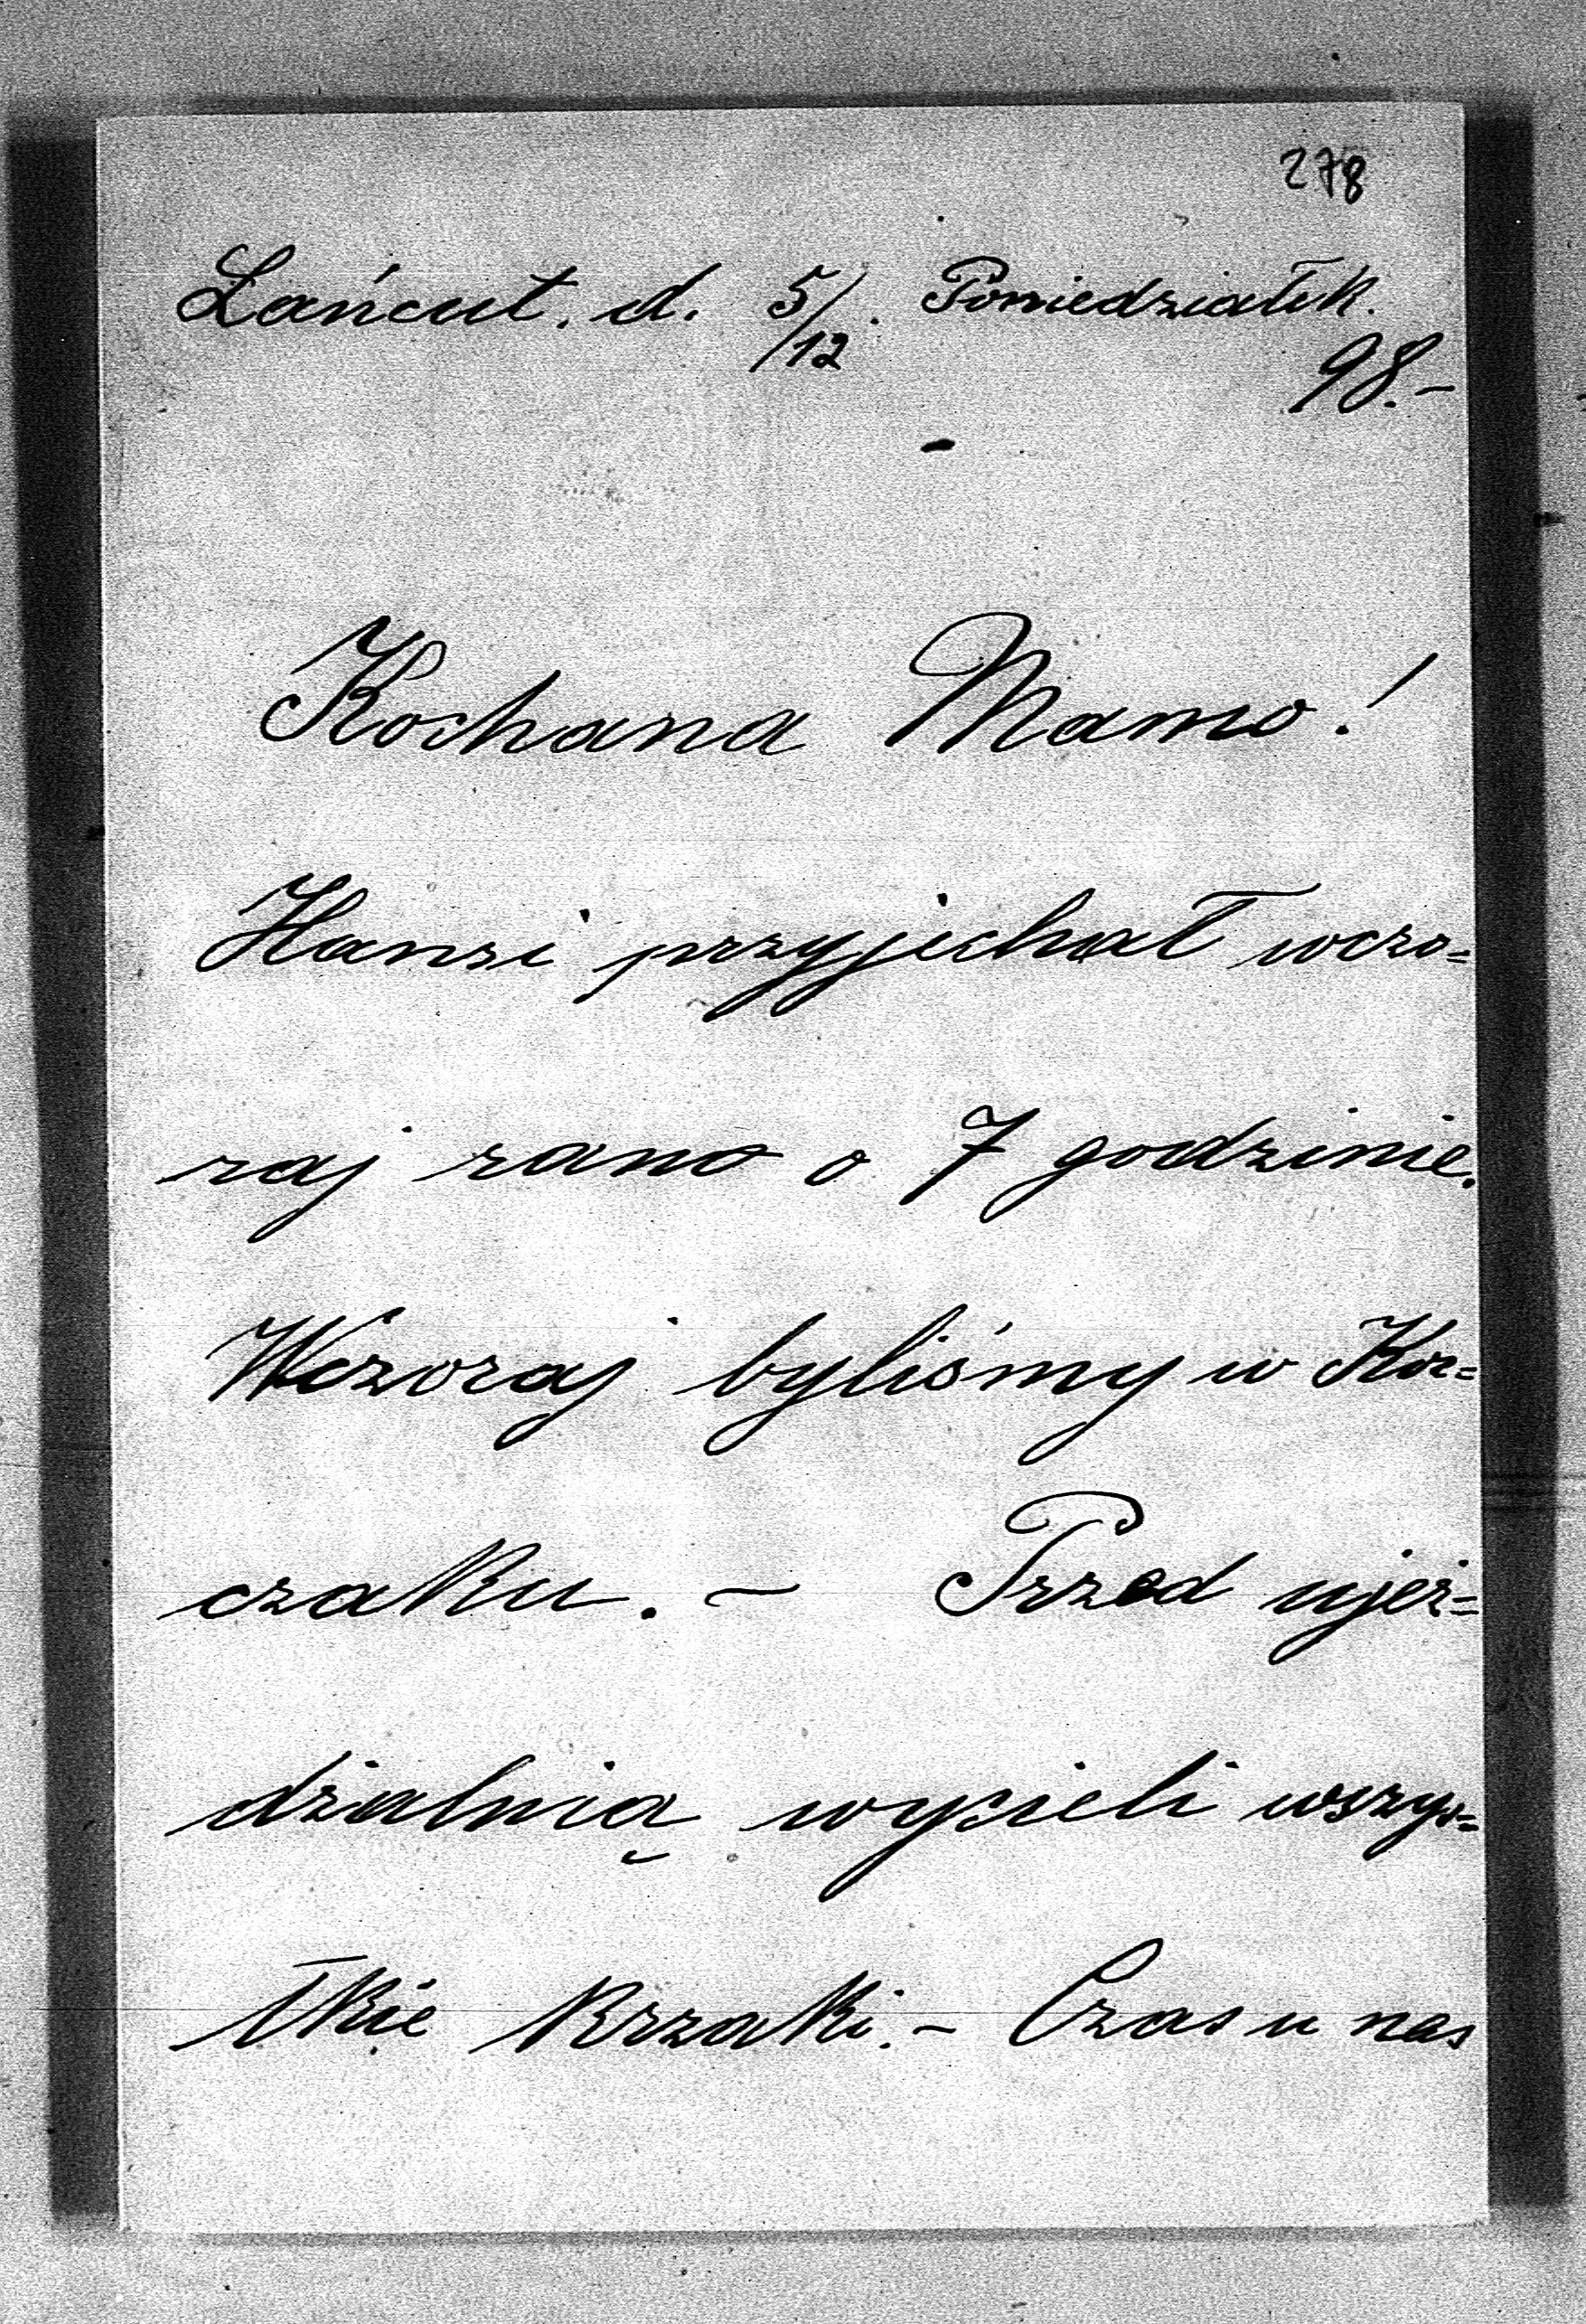 278
Łańcut. d. 5/12. Poniedziałek.
98.-
Kochana Mamo!
Hansi przyjechał wczo=
raj rano o 7 godzinie.
Wczoraj byliśmy w Kor=
czaku. - Przed ujeż=
dżalnią wycieli wszys=
tkie krzaki. - Czas u nas